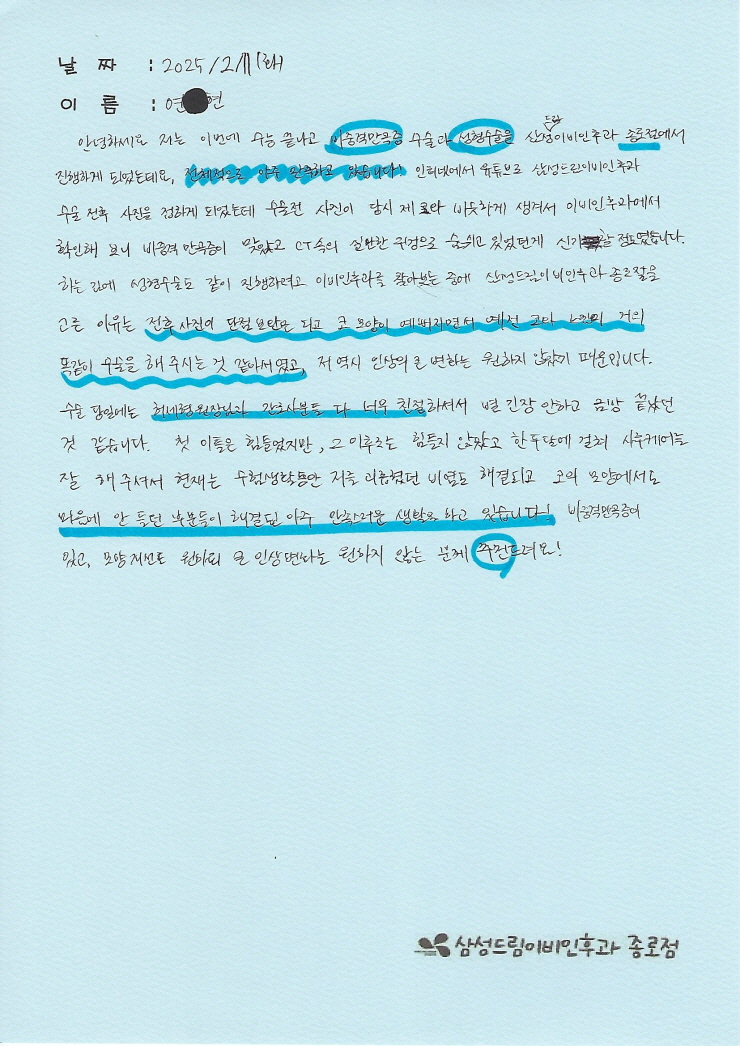 날 짜 : 2025/2/11(화)
이 름 : 연 현
안녕하세요 저는 이번에 수능 끝나고 비중격만곡증 수술과 성형수술을 삼성드림이비인후과 종로점에서
진행하게 되었는데요, 전체적으로 아주 만족하고 있습니다! 인터넷에서 유튜브로 삼성드림이비인후과
수술 전후 사진을 접하게 되었는데 수술전 사진이 당시 제 코와 비슷하게 생겨서 이비인후과에서
확인해 보니 비중격 만곡증이 맞았고 CT속의 구멍으로 숨쉬고 있었던게 신기할 정도였습니다.
하는 김에 성형수술도 같이 진행하려고 이비인후과를 찾아보는 중에 삼성드림이비인후과 종로점을
고른 이유는 전후사진이 단점보완만 되고 코 모양이 예뻐지면서 예전 코와 거의
똑같이 수술을 해 주시는 것 같아서였고, 저 역시 인상의 큰 변화는 원하지 않았기 때문입니다.
수술 당일에는 원장님과 간호사분들 다 너무 친절하셔서 별 긴장 안하고 금방 끝났던
것 같습니다. 첫 이틀은 힘들었지만, 그 이후로는 힘들지 않았고 한두달에 걸쳐 사후케어도
잘 해 주셔서 현재는 수험생활동안 저를 괴롭혔던 비염도 해결되고 코의 모양에서도
마음에 안 들던 부분들이 해결된 아주 만족스러운 생활을 하고 있습니다! 비중격만곡증이
있고, 모양 개선도 원하되 큰 인상변화는 원하지 않는 분께 추천드려요!
삼성드림이비인후과 종로점